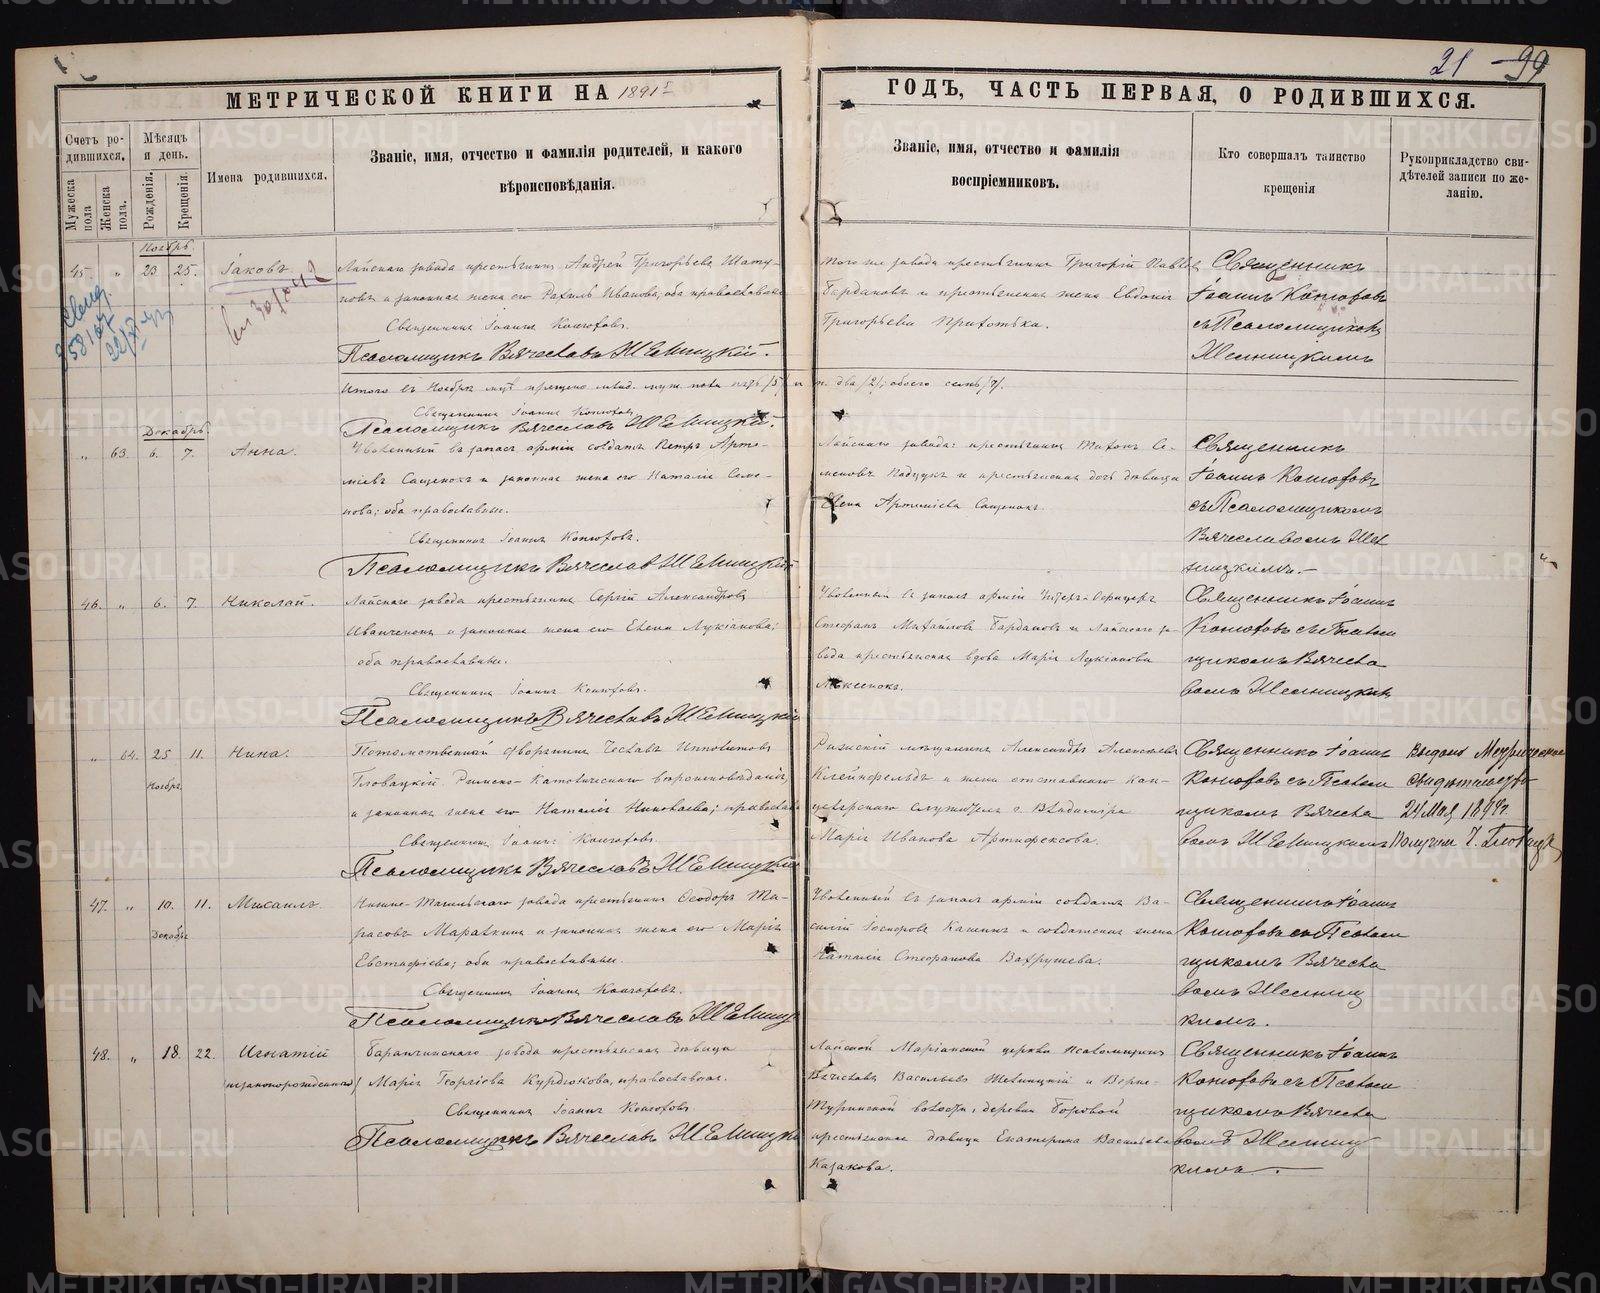 21 99
МЕТРИЧЕСКОЙ КНИГИ НА 1891 г
ГОДЪ, ЧАСТЬ ПЕРВАЯ, О РОДИВШИХСЯ.
Счетъ ро-
дившихся.
Мужеска
пола
Женска
пола.
Мѣсяцъ
и день.
Рожденія.
Крещенія.
Имена родившихся.
Званіе, имя, отчество и фамилія родителей, и какого
вѣроисповѣданія.
Званіе, имя, отчество и фамилія
воспріемниковъ.
Кто совершалъ таинство
крещенія
Рукоприкладство сви-
дѣтелей записи по же-
ланію.
Ноябрь
45. " 23 25. Іаковъ
Лайскаго завода крестьянинъ Андрей Григорьевъ Шату-
новъ и законная жена его Рахиль Иванова, оба православные
Священникъ Іоаннъ Конюховъ.
Псаломщикъ Вячеславъ Шемницкій.
того же завода крестьянинъ Григорій
и крестьянская жена Евдокія
Григорьева Прихотька.
Священникъ
Іоаннъ Конюховъ
съ Псаломщикомъ
Шемницкимъ
Итого въ Ноябрѣ крещено муж. пола пять /5/ и два /2/; обоего семь /7/.
Священникъ Іоаннъ Конюховъ
Псаломщикъ Вячеславъ Шемницкій.
Декабрь
" 63. 6. 7. Анна.
Уволенный въ запасъ арміи солдатъ Петръ Арте-
міевъ Сащенокъ и законная жена его Наталія Семе-
нова; оба православные.
Священникъ Іоаннъ Конюховъ.
Псаломщикъ Вячеславъ Шемницкій
Лайскаго завода: крестьянинъ Тихонъ Се-
меновъ и крестьянская дочь дѣвица
Елена Артиміева Сащенокъ.
Священникъ
Іоаннъ Конюховъ
съ Псаломщикомъ
Вячеславомъ Шем
ницкимъ.
46. " 6. 7. Николай.
Лайскаго завода крестьянинъ Сергій Александровъ
Иванченокъ и законная жена его Елена Лукіанова;
оба православные.
Священникъ Іоаннъ Конюховъ.
Псаломщикъ Вячеславъ Шемницкій
Уволенный въ запасъ арміи Унтеръ-Офицеръ
Стефанъ Михайловъ Бардановъ и Лайскаго за-
вода крестьянская вдова Марія Лукіанова
Священникъ Іоаннъ
Конюховъ съ Псалом
щикомъ Вячесла
вомъ Шемницкимъ
" 64. 25 11. Нина.
Ноябрь
Потомственный дворянинъ Чеславъ Ипполитовъ
Гловацкій Римско-Католическаго вѣроисповѣданія,
и законная жена его Наталія Николаева; православ
Священникъ Іоаннъ Конюховъ.
Псаломщикъ Вячеславъ Шемницкій
Рижскій мѣщанинъ Александръ Алексѣевъ
Клейнфельдъ и жена отставного кан-
целярскаго служителя г. Владиміра
Марія Иванова Артифексова.
Священникъ Іоаннъ
Конюховъ съ Псалом
щикомъ Вячесла
вомъ Шемницкимъ
Выдано Метрическое
свидѣтельство
24 Мая
Получил Ч. Гловацкій
47. " 10. 11. Михаилъ.
Декабрь
Нижне-Тагильскаго завода крестьянинъ Ѳеодоръ Та-
расовъ и законная жена его Марія
Евстафіева; оба православные.
Священникъ Іоаннъ Конюховъ.
Псаломщикъ Вячеславъ Шемниц
Уволенный въ запасъ арміи солдатъ Ва-
силій Кашинъ и солдатская жена
Наталія Стефанова Вахрушева.
Священникъ Іоаннъ
Конюховъ съ Псалом
щикомъ Вячесла
вомъ Шемниц
кимъ.
48. " 18. 22. Игнатій
/незаконнорожденный/
Баранчинскаго завода крестьянская дѣвица
Марія Георгіева Курдюкова, православная.
Священникъ Іоаннъ Конюховъ
Псаломщикъ Вячеславъ Шемницкі
Лайской Маріинской церкви псаломщикъ
Вячеславъ Васильевъ Шемницкій и Верхне-
Туринской волости, деревни Боровой
крестьянская дѣвица Екатерина Васильева
Казакова.
Священникъ Іоаннъ
Конюховъ съ Псалом
щикомъ Вячесла
вомъ Шемниц
кимъ.
METRIKI.GASO-URAL.RU